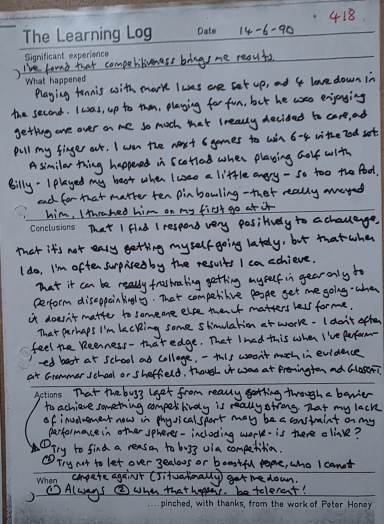 418.
The Learning Log Date 14-6-90
Significant experience
I've found that competitiveness brings me results.
What happened
Playing tennis with Mark I was one set up, and 4 love down in
the second. I was, up to then, playing for fun, but he was enjoying
getting one over on me so much that I really decided to care, and
pull my finger out. I won the next 6 games to win 6-4 in the 2nd set
A similar thing happened in Scotland when playing Golf with
Billy - I played my best when I was a little angry - so too the Pool,
and for that matter ten pin bowling - that really annoyed
him, I thrashed him on my first go at it
Conclusions That I find I respond very positively to a challenge,
that it's not easy getting myself going lately, but that when
I do, I'm often surprised by the results I can achieve.
That it can be really frustrating getting myself in gear only to
perform disappointingly. That competitive people get me going - when
it doesn't matter to someone else then it matters less for me.
That perhaps I'm lacking some stimulation at work - I don't often
feel the keenness - that edge. That I had this when I've perform-
ed best at school and College, - this wasn't much in evidence
at Grammar school or Sheffield, though it was at
Actions That the buzz I get from really getting through a barrier
to achieve something competitively is really strong. That my lack
of involvement now in physical sport may be a constraint on my
performance in other spheres - including work - is there a link?
① Try to find a reason to buzz via competition.
② Try not to let over zealous or boastful people, who I cannot
compete against (situationally) get me down.
When ① Always ② When that happens. be tolerant!
....pinched, with thanks, from the work of Peter Honey